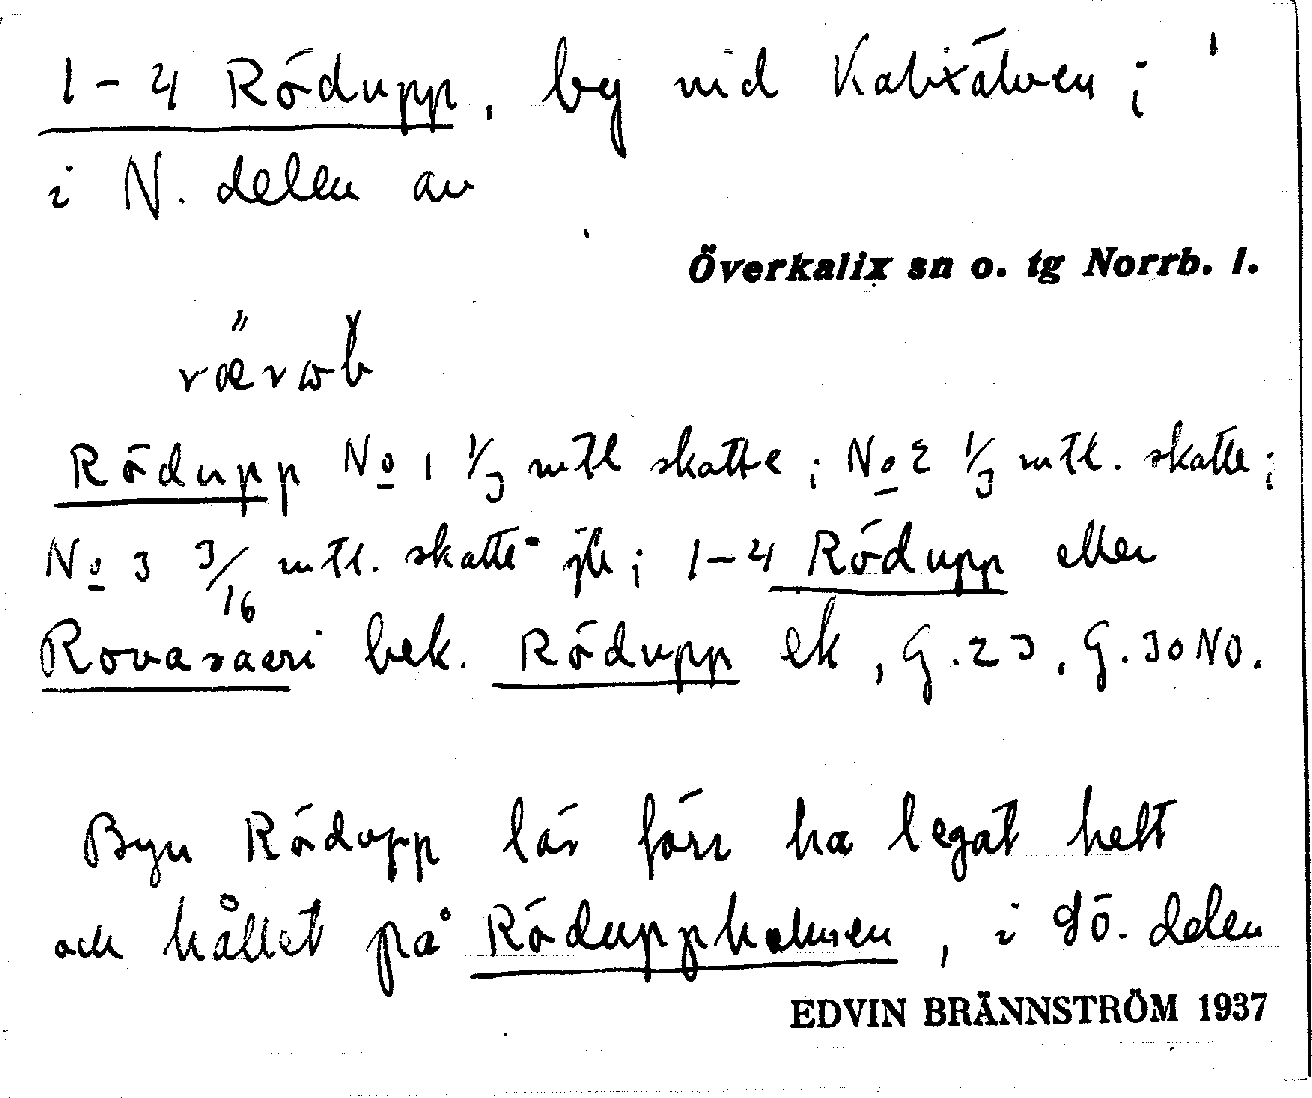 1-4 Rödupp, by vid Kalixälven;
i N. delen av
Överkalix sn o. tg Norrb. l.
Rödupp No 1 1/3 mtl skatte; No 2 1/3 mtl. skatte;
No 3 3/16 mtl. skatte jb; 1-4 Rödupp eller
Rovasaari bek. Rödupp ek, G.23, G.30NO.
Byn Rödupp lär förr ha legat helt
och hållet på Röduppholmen, i SÖ. delen
EDVIN BRÄNNSTRÖM 1937